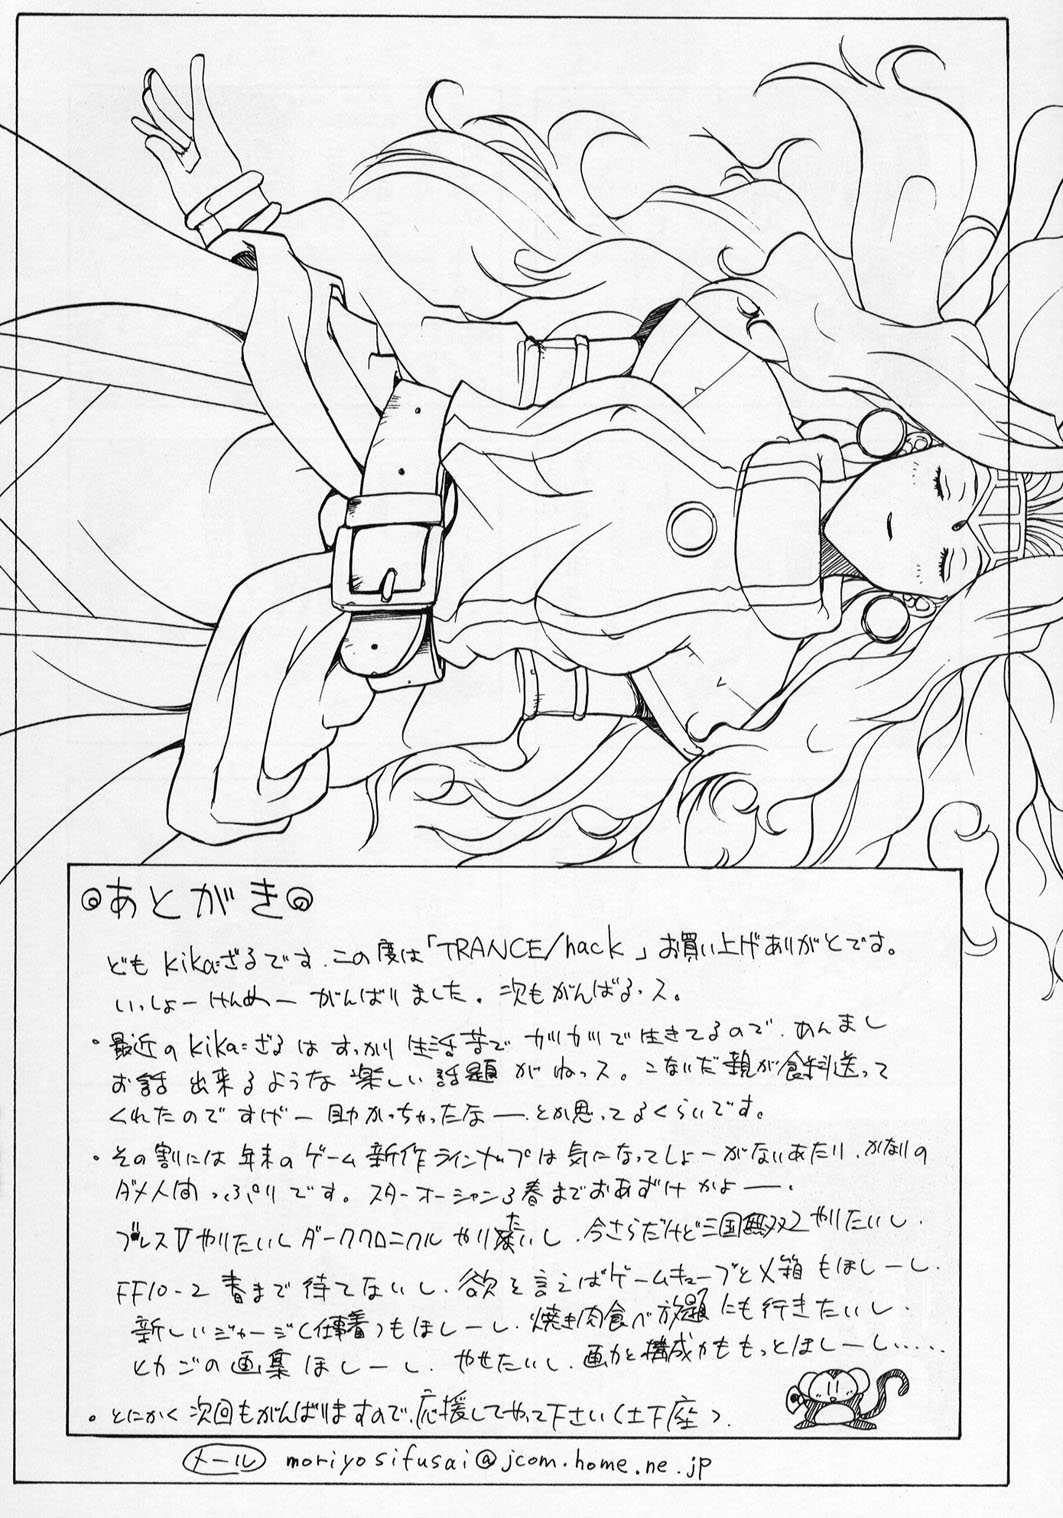 あとがき
ども kikaざるです.この度は「TRANCE/hack」お買い上げありがとです。
いっしょーけんめーがんばりました。次もがんばるッス。
・最近のkikaざるはすっかり生活苦でガリガリで生きてるので.あんまし
お話出来るような楽しい話題がねっス。こないだ親が食料送って
くれたのですげー助かっちゃったなー.とか思ってるくらいです。
・その割には年末のゲーム新作ラインナップは気になってしょーがないあたり.かなりの
ダメ人間っぷりです。スターオーシャン3春までおあずけかよー.
ブレスⅤやりたいしダーククロニクルやりたいし.今さらだけど三国無双2やりたいし.
FF10-2 春まで待てないし.欲を言えばゲームキューブとX箱もほしーし.
新しいジャージ(仕事着)もほしーし.焼き肉食べ放題にも行きたいし.
ヒカゴの画集ほしーし.やせたいし.画力と構成力ももっとほしーし.....
・とにかく次回もがんばりますので.応援してやって下さい(土下座).
メール moriyosifusai@jcom.home.ne.jp